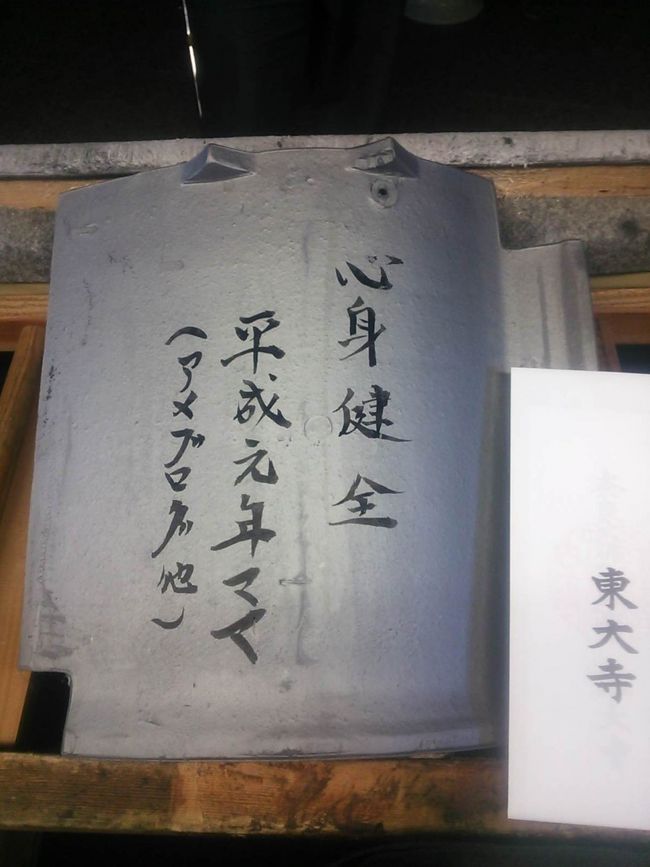 心身健全
平成元年ママ
(アメブログ他)
東大寺